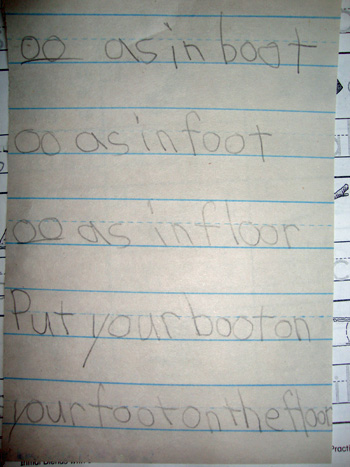 oo as in boot
oo as in foot
oo as in floor
Put your boot on
your foot on the floor